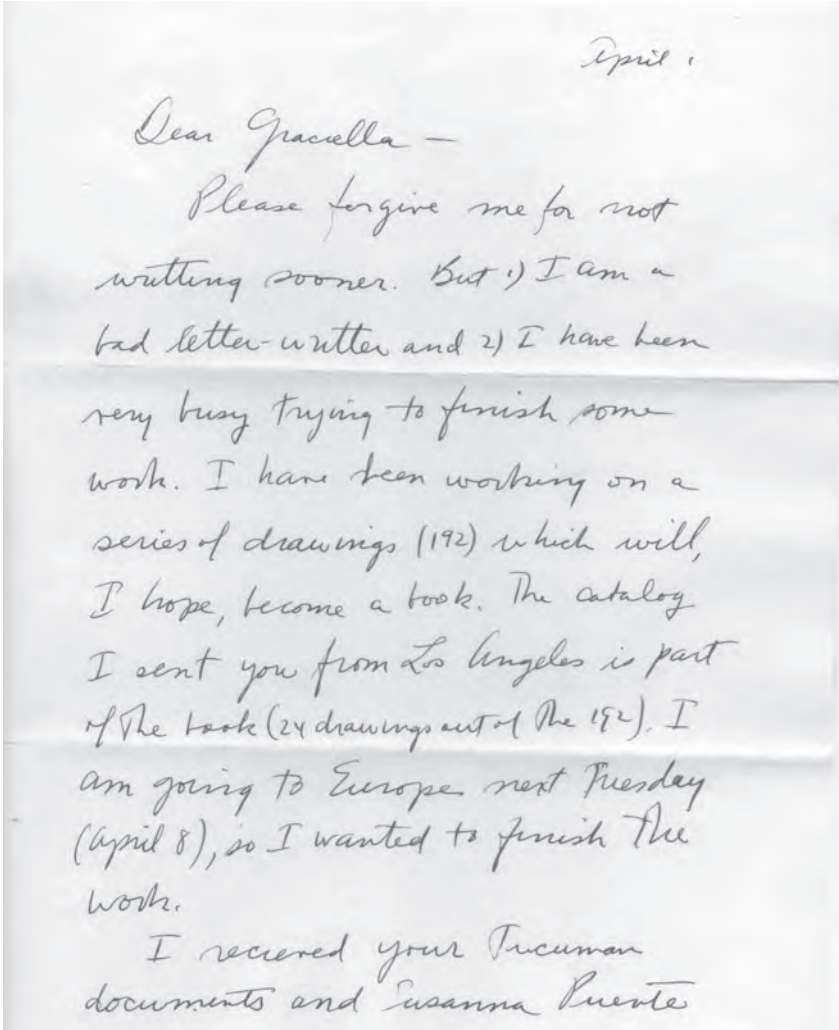 April 1
Dear Graciella —
Please forgive me for not
writting sooner. But 1) I am a
bad letter-writter and 2) I have been
very busy trying to finish some
work. I have been working on a
series of drawings (192) which will,
I hope, become a book. The catalog
I sent you from Los Angeles is part
of the book (24 drawings out of the 192). I
am going to Europe next Tuesday
(April 8), so I wanted to finish the
work.
I recieved your Tucuman
documents and Susanna Puente